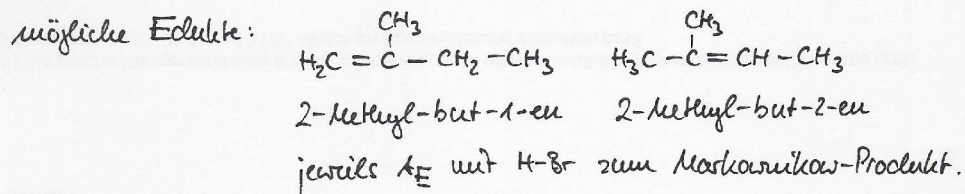 mögliche Edukte:
CH3 CH3
H2C = C - CH2 - CH3 H3C - C = CH - CH3
2-Methyl-but-1-en 2-Methyl-but-2-en
jeweils AE mit H-Br zum Markownikow-Produkt.